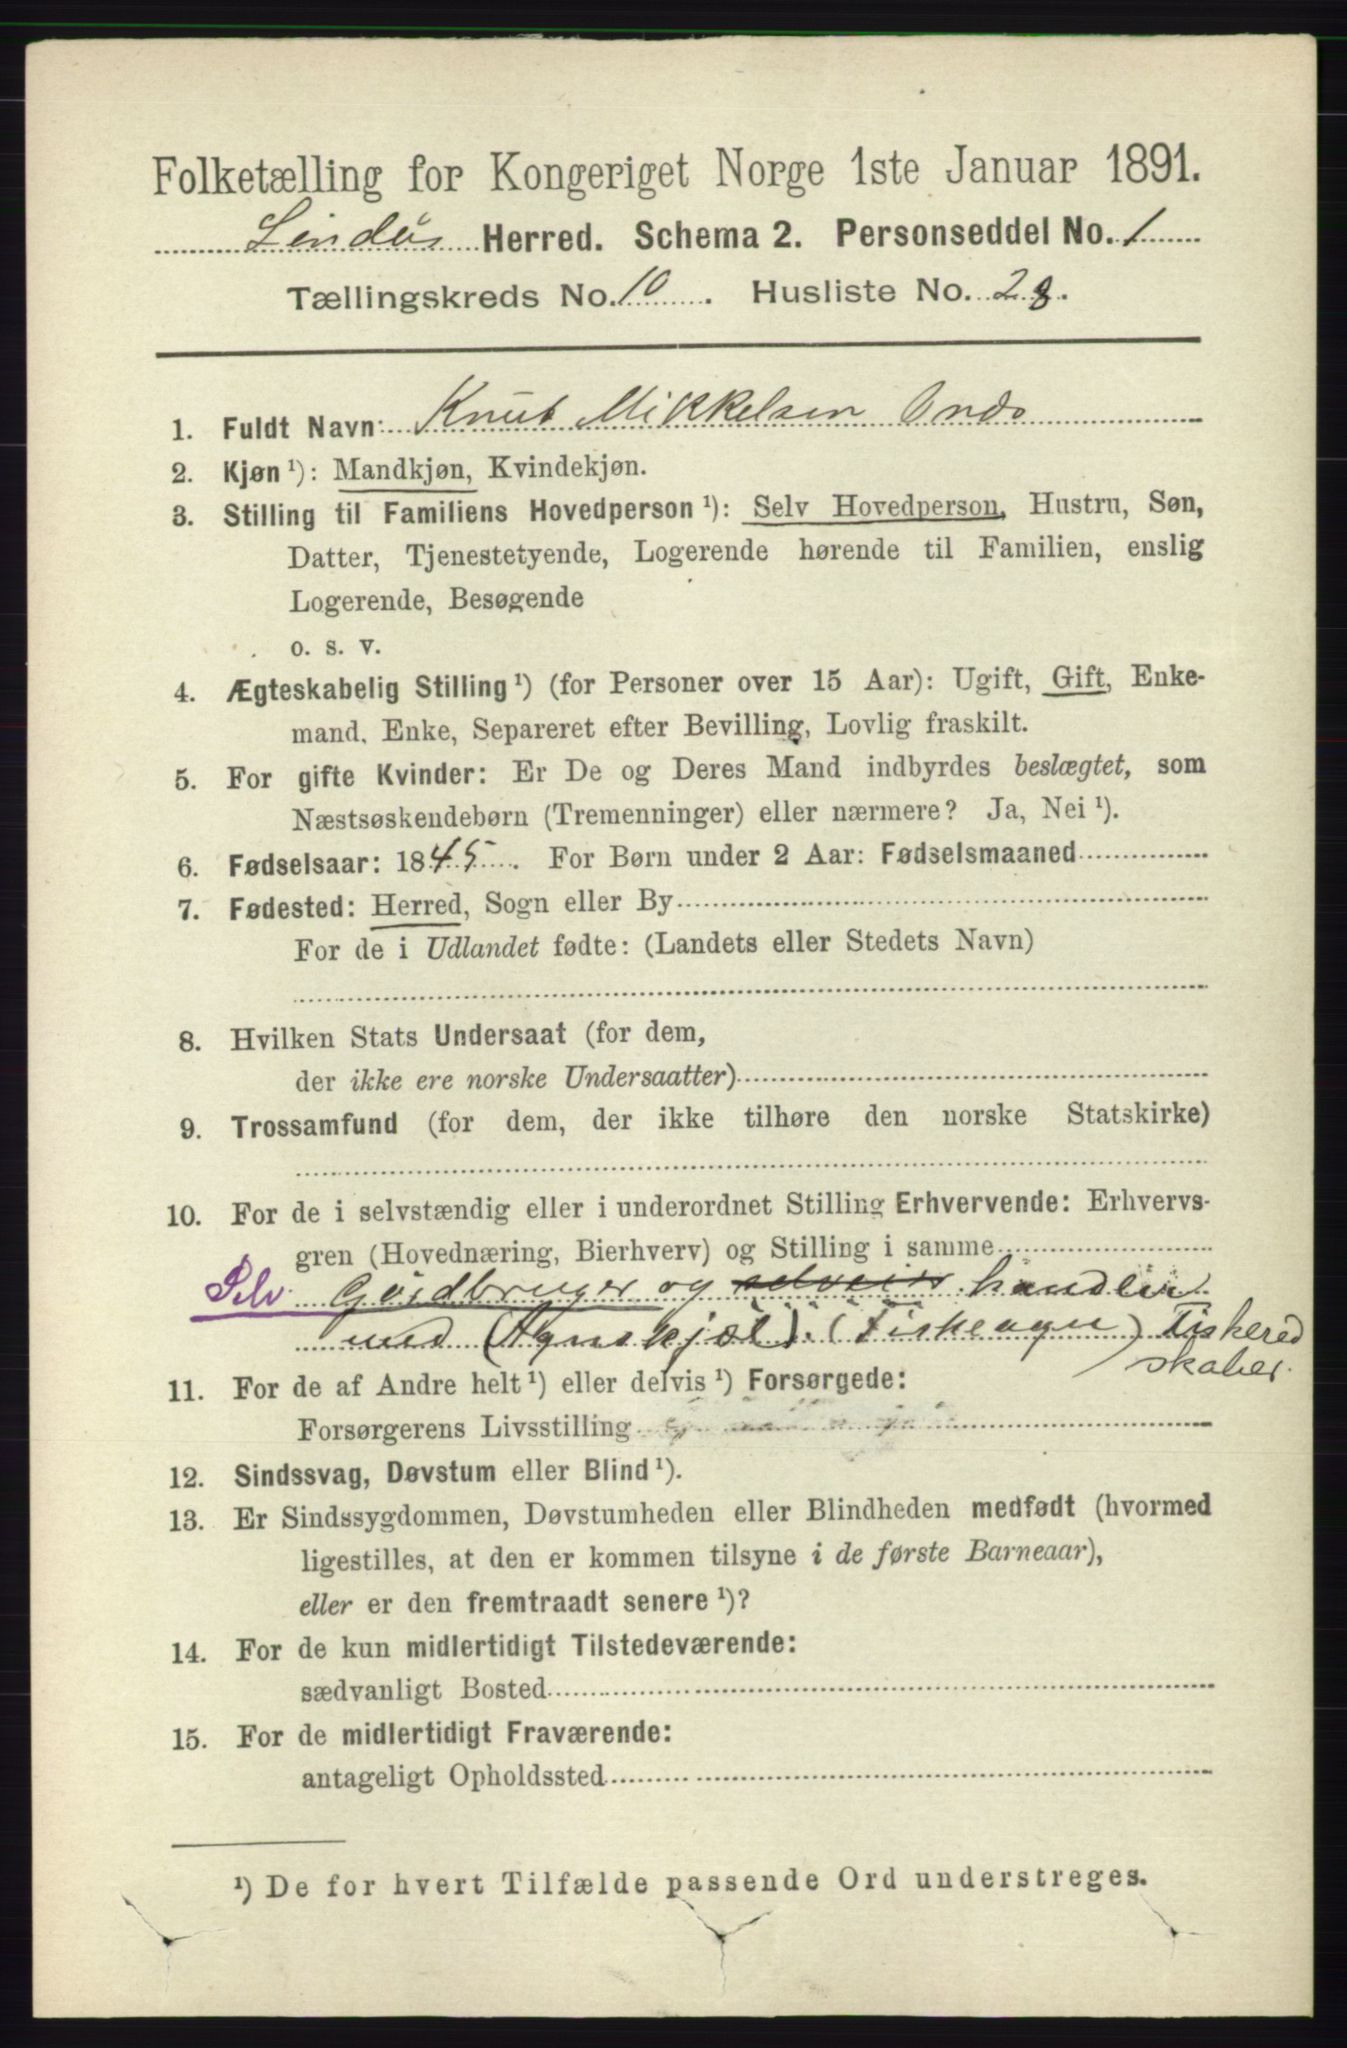 Folketælling for Kongeriget Norge 1ste Januar 1891.
Lindås Herred. Schema 2. Personseddel No. 1
Tællingskreds No. 10. Husliste No. 28.
1. Fuldt Navn: Knut Mikkelsen Ondø
2. Kjøn ¹): Mandkjøn, Kvindekjøn.
3. Stilling til Familiens Hovedperson ¹): Selv Hovedperson, Hustru, Søn,
Datter, Tjenestetyende, Logerende hørende til Familien, enslig
Logerende, Besøgende
o. s. v.
4. Ægteskabelig Stilling ¹) (for Personer over 15 Aar): Ugift, Gift, Enke-
mand, Enke, Separeret efter Bevilling, Lovlig fraskilt.
5. For gifte Kvinder: Er De og Deres Mand indbyrdes beslægtet, som
Næstsøskendebørn (Tremenninger) eller nærmere? Ja, Nei ¹).
6. Fødselsaar: 1845. For Børn under 2 Aar: Fødselsmaaned
7. Fødested: Herred, Sogn eller By
For de i Udlandet fødte: (Landets eller Stedets Navn)
8. Hvilken Stats Undersaat (for dem,
der ikke ere norske Undersaatter)
9. Trossamfund (for dem, der ikke tilhøre den norske Statskirke)
10. For de i selvstændig eller i underordnet Stilling Erhvervende: Erhvervs-
gren (Hovednæring, Bierhverv) og Stilling i samme
Selv Gårdbruger og selveier handler
med (Agnskjæl). (Fiskeagn) Fiskered
skaber.
11. For de af Andre helt ¹) eller delvis ¹) Forsørgede:
Forsørgerens Livsstilling
12. Sindssvag, Døvstum eller Blind ¹).
13. Er Sindssygdommen, Døvstumheden eller Blindheden medfødt (hvormed
ligestilles, at den er kommen tilsyne i de første Barneaar),
eller er den fremtraadt senere ¹)?
14. For de kun midlertidigt Tilstedeværende:
sædvanligt Bosted
15. For de midlertidigt Fraværende:
antageligt Opholdssted
¹) De for hvert Tilfælde passende Ord understreges.